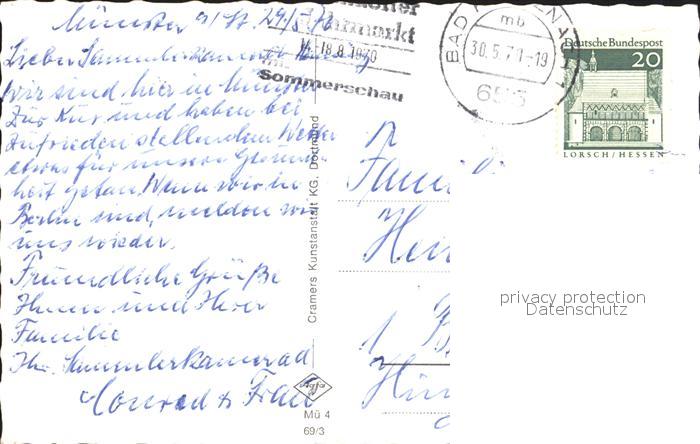 Münster a/St. 29/5.70
Lieber Sammlerkamerad
wir sind hier in Münster
zur Kur und haben bei
zufrieden stellenden Wetter
etwas für unsere Gesund-
heit getan. Wenn wir in
Berlin sind, melden wir
uns wieder.
Freundliche Grüße
Ihnen und Ihrer
Familie
Ihr Sammlerkamerad
Conrad & Frau
markt
18.8.1970
Sommerschau
BAD
mb
30.5.70-19
Deutsche Bundespost
20
LORSCH/HESSEN
Cramers Kunstanstalt KG. Dortmund
Agfa
Mü 4
69/3
Fami
Hein
1 B
privacy protection
Datenschutz